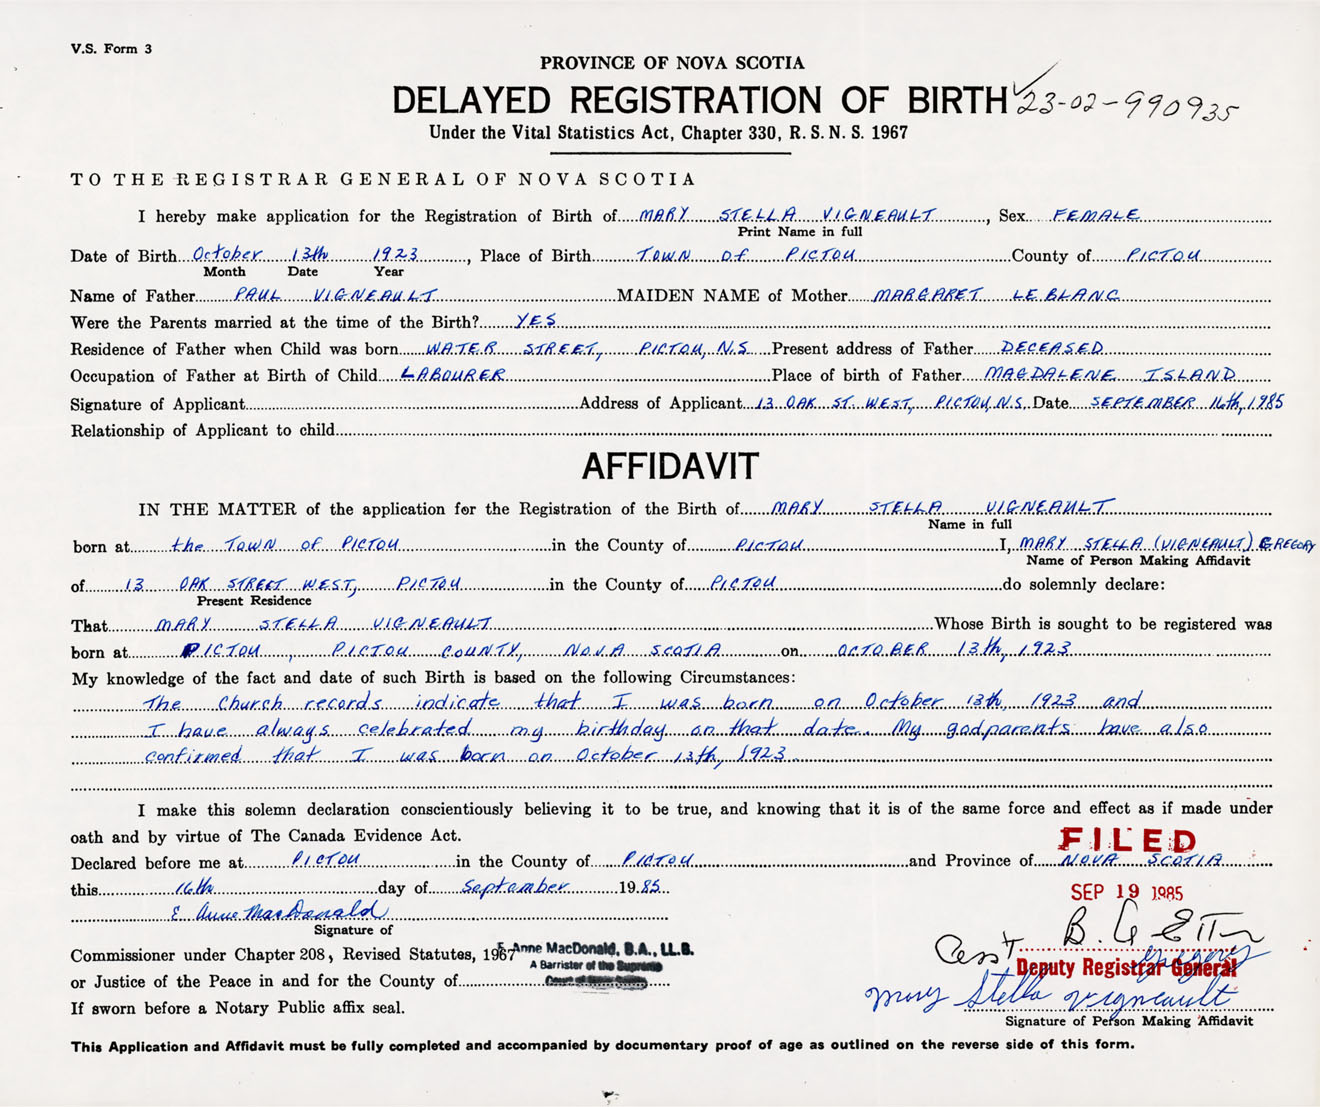 V.S. Form 3
PROVINCE OF NOVA SCOTIA
DELAYED REGISTRATION OF BIRTH 23-02-990935
Under the Vital Statistics Act, Chapter 330, R. S. N. S. 1967
TO THE REGISTRAR GENERAL OF NOVA SCOTIA
I hereby make application for the Registration of Birth of MARY STELLA VIGNEAULT, Sex FEMALE
Print Name in full
Date of Birth October 13th 1923, Place of Birth TOWN OF PICTOU County of PICTOU
Month Date Year
Name of Father PAUL VIGNEAULT MAIDEN NAME of Mother MARGARET LE BLANC
Were the Parents married at the time of the Birth? YES
Residence of Father when Child was born WATER STREET, PICTOU, N.S. Present address of Father DECEASED
Occupation of Father at Birth of Child LABOURER Place of birth of Father MAGDALENE ISLAND
Signature of Applicant Address of Applicant 13 OAK ST. WEST, PICTOU, N.S. Date SEPTEMBER 16th, 1985
Relationship of Applicant to child
AFFIDAVIT
IN THE MATTER of the application for the Registration of the Birth of MARY STELLA VIGNEAULT
Name in full
born at the TOWN OF PICTOU in the County of PICTOU I, MARY STELLA (VIGNEAULT) GREGORY
Name of Person Making Affidavit
of 13 OAK STREET WEST, PICTOU in the County of PICTOU do solemnly declare:
Present Residence
That MARY STELLA VIGNEAULT Whose Birth is sought to be registered was
born at PICTOU, PICTOU COUNTY, NOVA SCOTIA on OCTOBER 13th, 1923
My knowledge of the fact and date of such Birth is based on the following Circumstances:
The Church records indicate that I was born on October 13th, 1923 and
I have always celebrated my birthday on that date. My godparents have also
confirmed that I was born on October 13th, 1923.
I make this solemn declaration conscientiously believing it to be true, and knowing that it is of the same force and effect as if made under
oath and by virtue of The Canada Evidence Act.
FILED
Declared before me at PICTOU in the County of PICTOU and Province of NOVA SCOTIA
this 16th day of September 1985
SEP 19 1985
E. Anne MacDonald
Signature of
Commissioner under Chapter 208, Revised Statutes, 1967 E. Anne MacDonald, B.A., LL.B.
A Barrister of the Supreme
Deputy Registrar General
or Justice of the Peace in and for the County of
Gregory
Mary Stella Vigneault
If sworn before a Notary Public affix seal.
Signature of Person Making Affidavit
This Application and Affidavit must be fully completed and accompanied by documentary proof of age as outlined on the reverse side of this form.